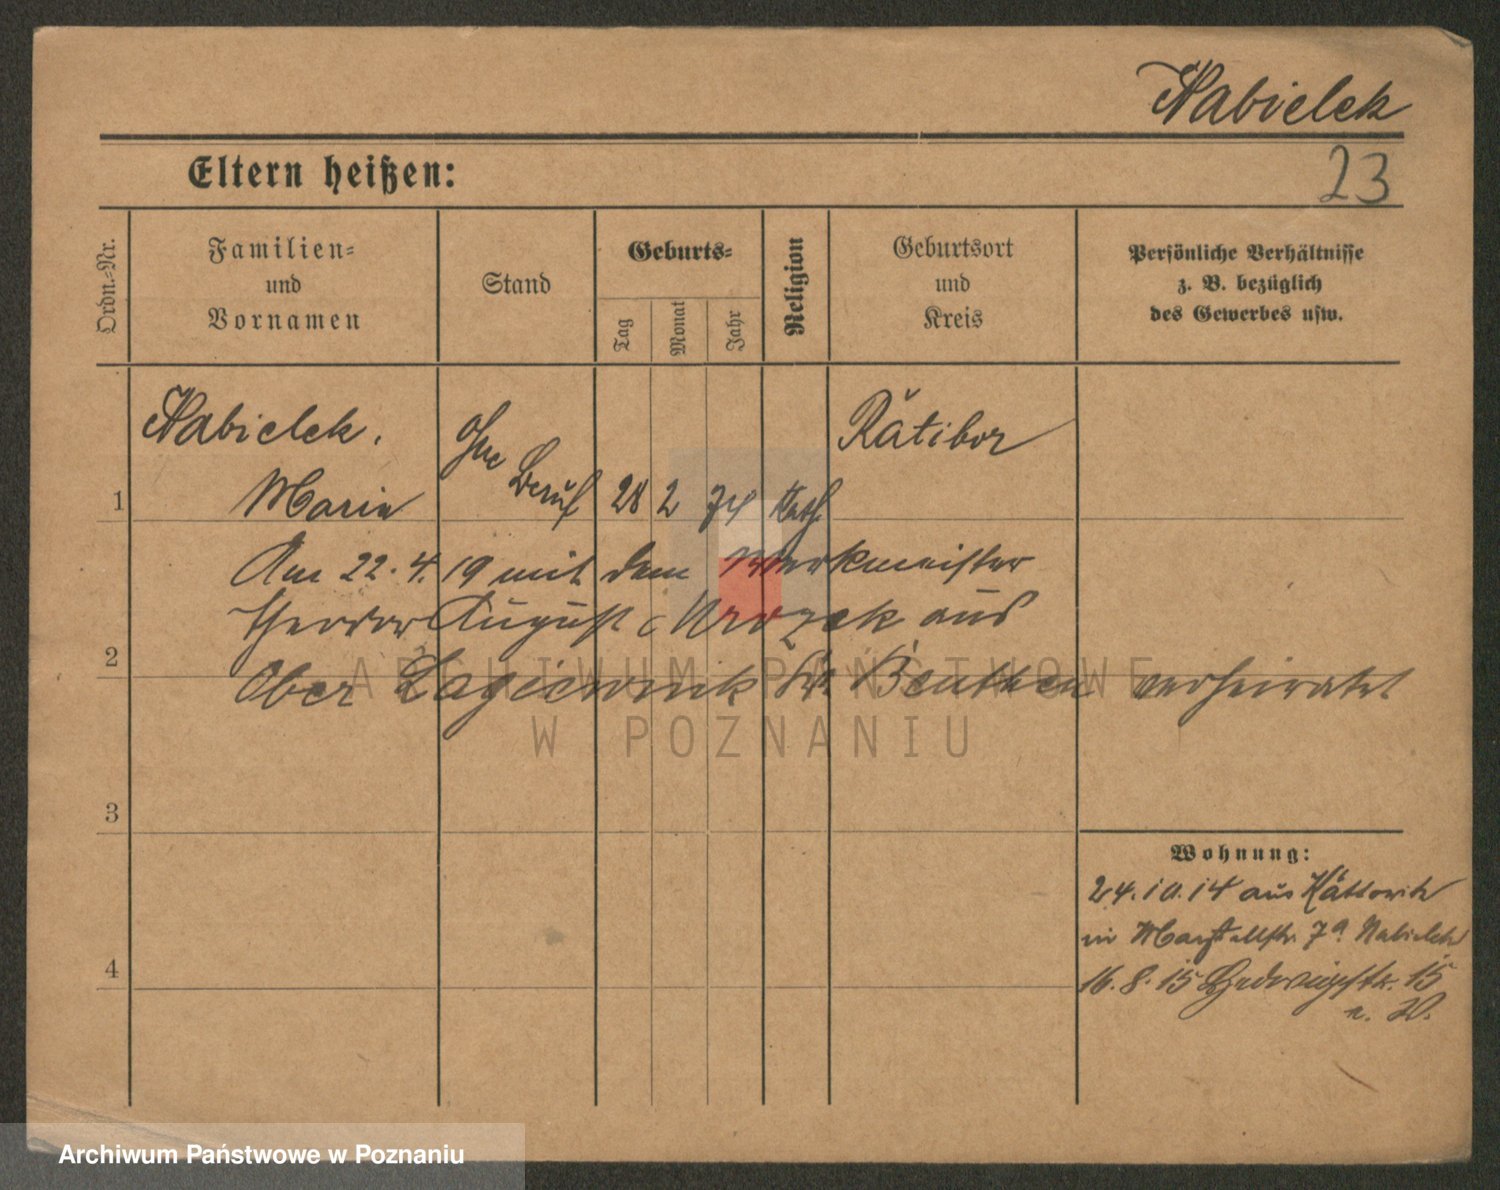 Nabielek
Eltern heißen:
23
Ordn.-Nr.
Familien-
und
Vornamen
Stand
Geburts-
Tag
Monat
Jahr
Religion
Geburtsort
und
Kreis
Persönliche Verhältnisse
z. B. bezüglich
des Gewerbes usw.
Nabielek,
Marie
ohne
Beruf
28 2 74 kath.
Ratibor
1
Am 22.4.19 mit dem Werkmeister
Theodor August Mrozek aus
2
Ober Lagiewnik Kr. Beuthen verheiratet
ARCHIWUM PAŃSTWOWE
W POZNANIU
3
Wohnung:
24.10.14 aus Kattowitz
in Marstallstr. 7a Nabielek
16.8.15 Hedwigstr. 15
4
Archiwum Państwowe w Poznaniu